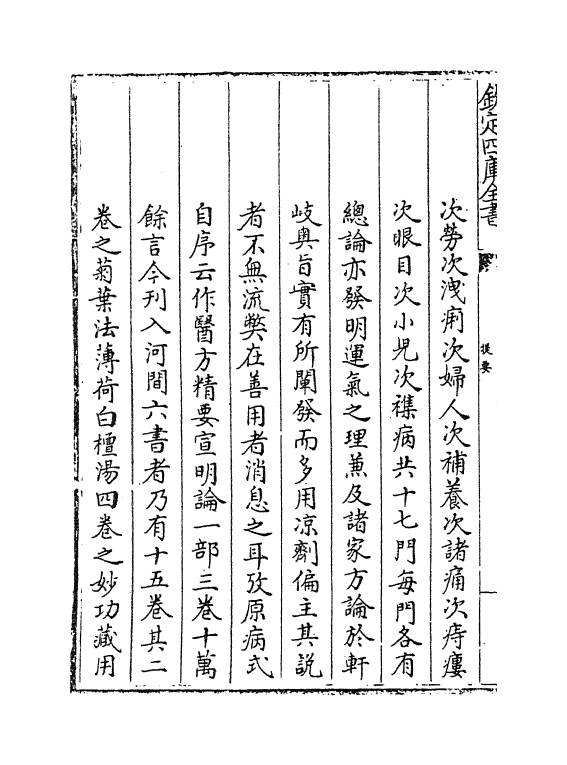 欽定四庫全書
提要
次勞次洩痢次婦人次補養次諸痛次痔瘻
次眼目次小兒次襍病共十七門每門各有
總論亦發明運氣之理兼及諸家方論於軒
岐奥旨實有所闡發而多用凉劑偏主其説
者不無流弊在善用者消息之耳攷原病式
自序云作醫方精要宣明論一部三卷十萬
餘言今刋入河間六書者乃有十五卷其二
卷之菊葉法薄荷白檀湯四卷之妙功藏用